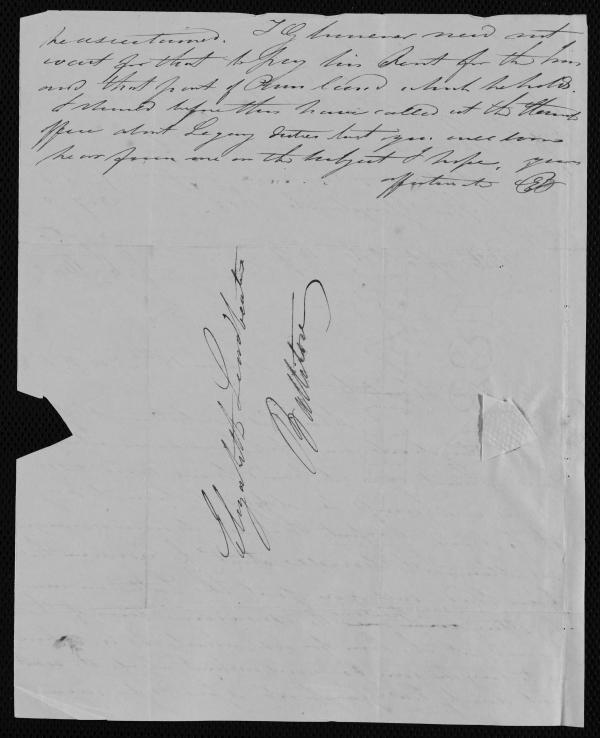 be ascertained. T G however need not
wait for that to pay his Rent for the
and that part of land which he holds.
I should before this have called at the Stamp
office about Legacy duties but you will soon
hear from me on the subject I hope, yours
affectionate
Elizabeth Leadbeater
Ballitore